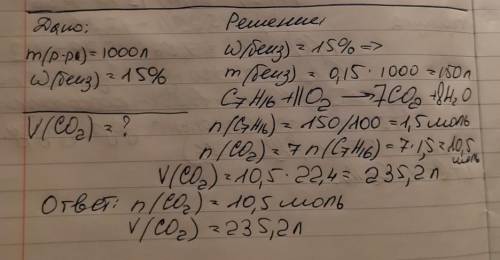 Дано:
m(р-ра)=1000л
ω(бенз)=15%
V(CO2)=?
Решение:
ω(бенз)=15% =>
m(бенз)=0,15·1000=150л
C7H16+11O2→7CO2+8H2O
n(C7H16)=150/100=1,5моль
n(CO2)=7n(C7H16)=7·1,5=10,5 моль
V(CO2)=10,5·22,4=235,2л
Ответ: n(CO2)=10,5моль
V(CO2)=235,2л